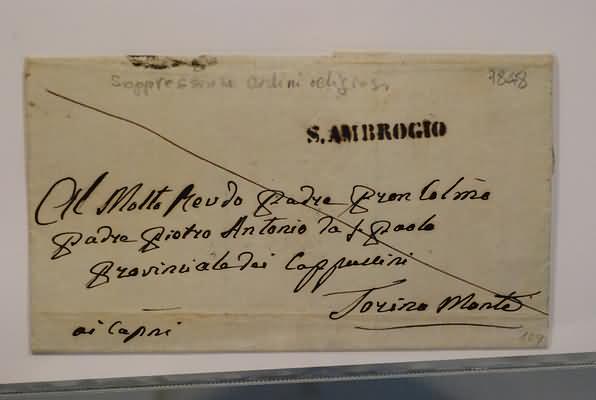 Soppressione ordini religiosi 1848
S. AMBROGIO
Al Molto Revdo Padre Pron Colmo
Padre Pietro Antonio da S. Paolo
Provinciale dei Cappuccini
Torino Monte
ai Capni
109